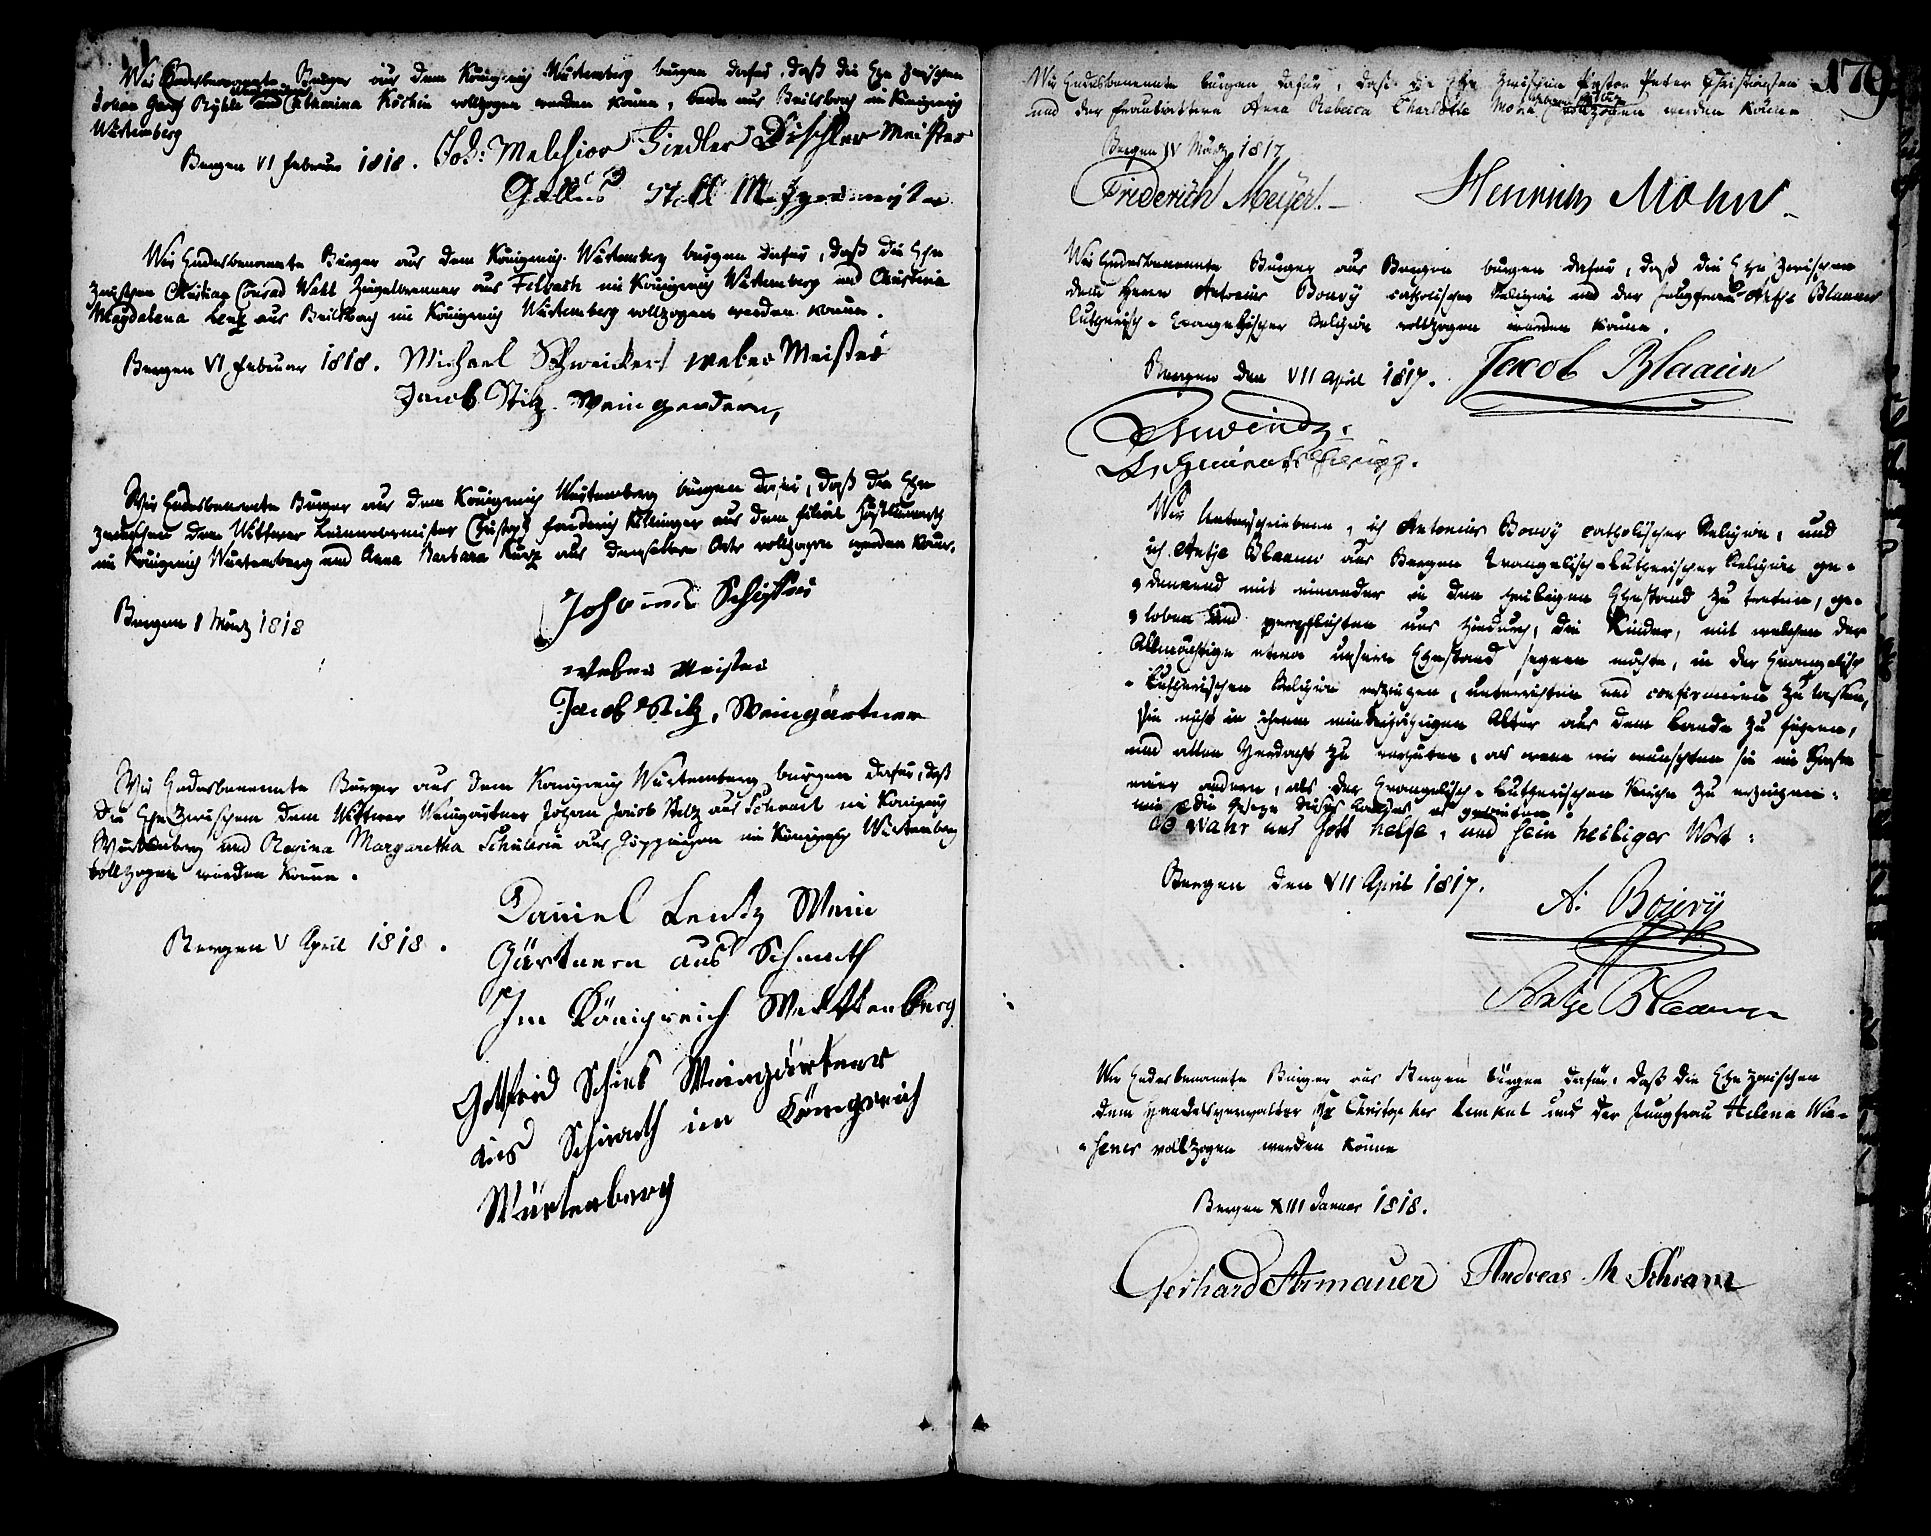 Wir Endesbenannte Burger aus dem Königreich Wurtemberg burgen dafur, daß die Ehe zwischen
Johan Georg und Catharina Köchin vollzogen werden könne, beide aus Beilsbach im Königreich
Würtemberg
Bergen VI Februar 1818. Joh: Melchior Fiedler Dischler Meister
Gallus Metzgermeister
Wir Endesbenannte Burger aus dem Königreich Würtemberg burgen dafur, daß die Ehe
zwischen Christian Conrad Ziegelbrenner aus Felbach im Königreich Wurtemberg und Christina
Magdalena Lenz aus Beilsbach im Königreich Würtemberg vollzogen werden könne.
Bergen VI Februar 1818. Michael Schweickert weber Meister
Jacob Stilz. Weingerdern,
Wir Endesbenannte Burger aus dem Königreich Wurtemberg burgen dafur, daß die Ehe
zwischen dem Wittwer Leinwebermeister Christoph Friederich aus dem Filial
im Königreich Wurtemberg und Anna Barbara Kurz aus demselben Orte vollzogen werden könne.
Bergen I März 1818
Johannes
weber Meister
Jacob Stilz, Weingärtner
Wir Endesbenannte Burger aus dem Königreich Wurtemberg burgen dafur, daß
die Ehe zwischen dem Wittwer Weingartner Johan Jacob Stilz aus Schnait im Königreich
Wurtemberg und Rosina Margaretha Schülerin aus Göppingen im Königreich Würtemberg
vollzogen werden könne.
Bergen V April 1818.
Daniel Lentz Wein
Gärtnern aus Schnaith
Im Königreich Wirttenberg
Gottfrid Schiek Weingärtner
aus Schnaith im Königreich
Würtenberg
179
Wir Endesbenannte burgen dafur, daß die Ehe zwischen Pastor Peter Christiansen
und der Frau Anna Rebecca Charlotta Mohn vollzogen werden könne
Bergen IV März 1817
Friderich Meyer. Henrich Mohn
Wir Endesbenannte Burger aus Bergen burgen dafur, daß die Ehe zwischen
dem Herrn Antonius Bouvÿ catholischer Religion und der Jungfrau Antje Blaauw
Lutherisch-Evangelischer Religion vollzogen werden könne.
Bergen den VII April 1817. Jacob Blaauw
Wir Unterschriebene, ich Antonius Bouvÿ catholischer Religion, und
ich Antje Blaauw aus Bergen Evangelisch-Lutherischer Religion ge-
denkend mit einander in den heiligen Ehestand zu treten, ge-
loben und verpflichten uns hiedurch, die Kinder, mit welchen der
Allmächtige etwa unsern Ehestand segnen möchte, in der Evangelisch
-Lutherischen Religion erziehen, unterrichten und confirmiren zu lassen,
sie nicht in ihrem minderjährigen Alter aus dem Lande zu führen,
und allen Verdacht zu verhuten, als wenn wir wunschten sie im Schoße
einer andern, als der Evangelisch-Lutherischen Kirche zu erziehen:
wie die Geseze dieses Landes es gebieten.
So wahr uns Gott helfe, und sein heiliges Wort:
Bergen den VII April 1817.
A: Bouvÿ
Antje Blaauw
Wir Endesbenannte Burger aus Bergen burgen dafur, daß die Ehe zwischen
dem Handelsverwalter Hr Christopher Lemkul und der Jungfrau Helena Wie-
-sener vollzogen werden könne
Bergen XIII Januar 1818.
Gerhard Armauer Andreas M Schram